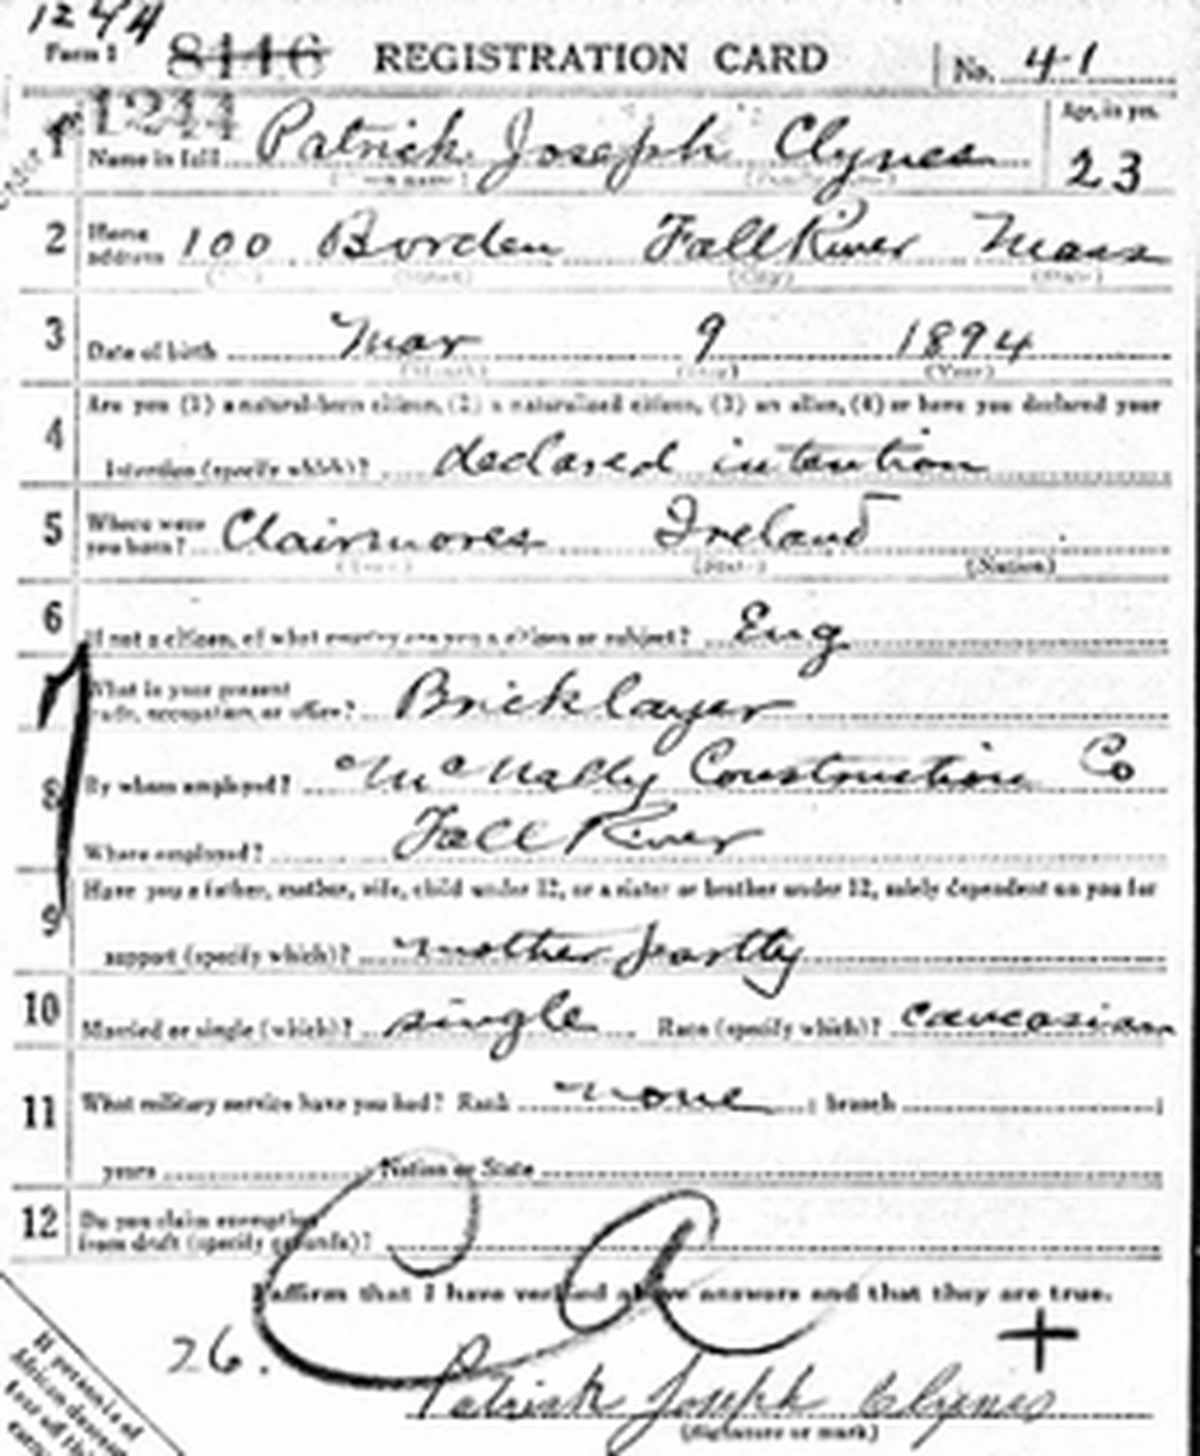 1244
Form 1 8446 REGISTRATION CARD No. 41
1244
1 Name in full Patrick Joseph Clynes Age, in yrs. 23
(Given name) (Family name)
2 Home address 100 Borden Fall River Mass
(No.) (Street) (City) (State)
3 Date of birth Mar 9 1894
(Month) (Day) (Year)
4 Are you (1) a natural-born citizen, (2) a naturalized citizen, (3) an alien, (4) or have you declared your
intention (specify which)? declared intention
5 Where were you born? Clairmores Ireland
(Town) (State) (Nation)
6 If not a citizen, of what country are you a citizen or subject? Eng
7 What is your present
trade, occupation, or office? Bricklayer
8 By whom employed? McNally Construction Co
Where employed? Fall River
9 Have you a father, mother, wife, child under 12, or a sister or brother under 12, solely dependent on you for
support (specify which)? mother partly
10 Married or single (which)? single Race (specify which)? caucasian
11 What military service have you had? Rank none ; branch ;
years Nation or State
12 Do you claim exemption
from draft (specify grounds)?
C A
I affirm that I have verified above answers and that they are true.
26. +
Patrick Joseph Clynes
(Signature or mark)
If person is of
African descent
tear off this